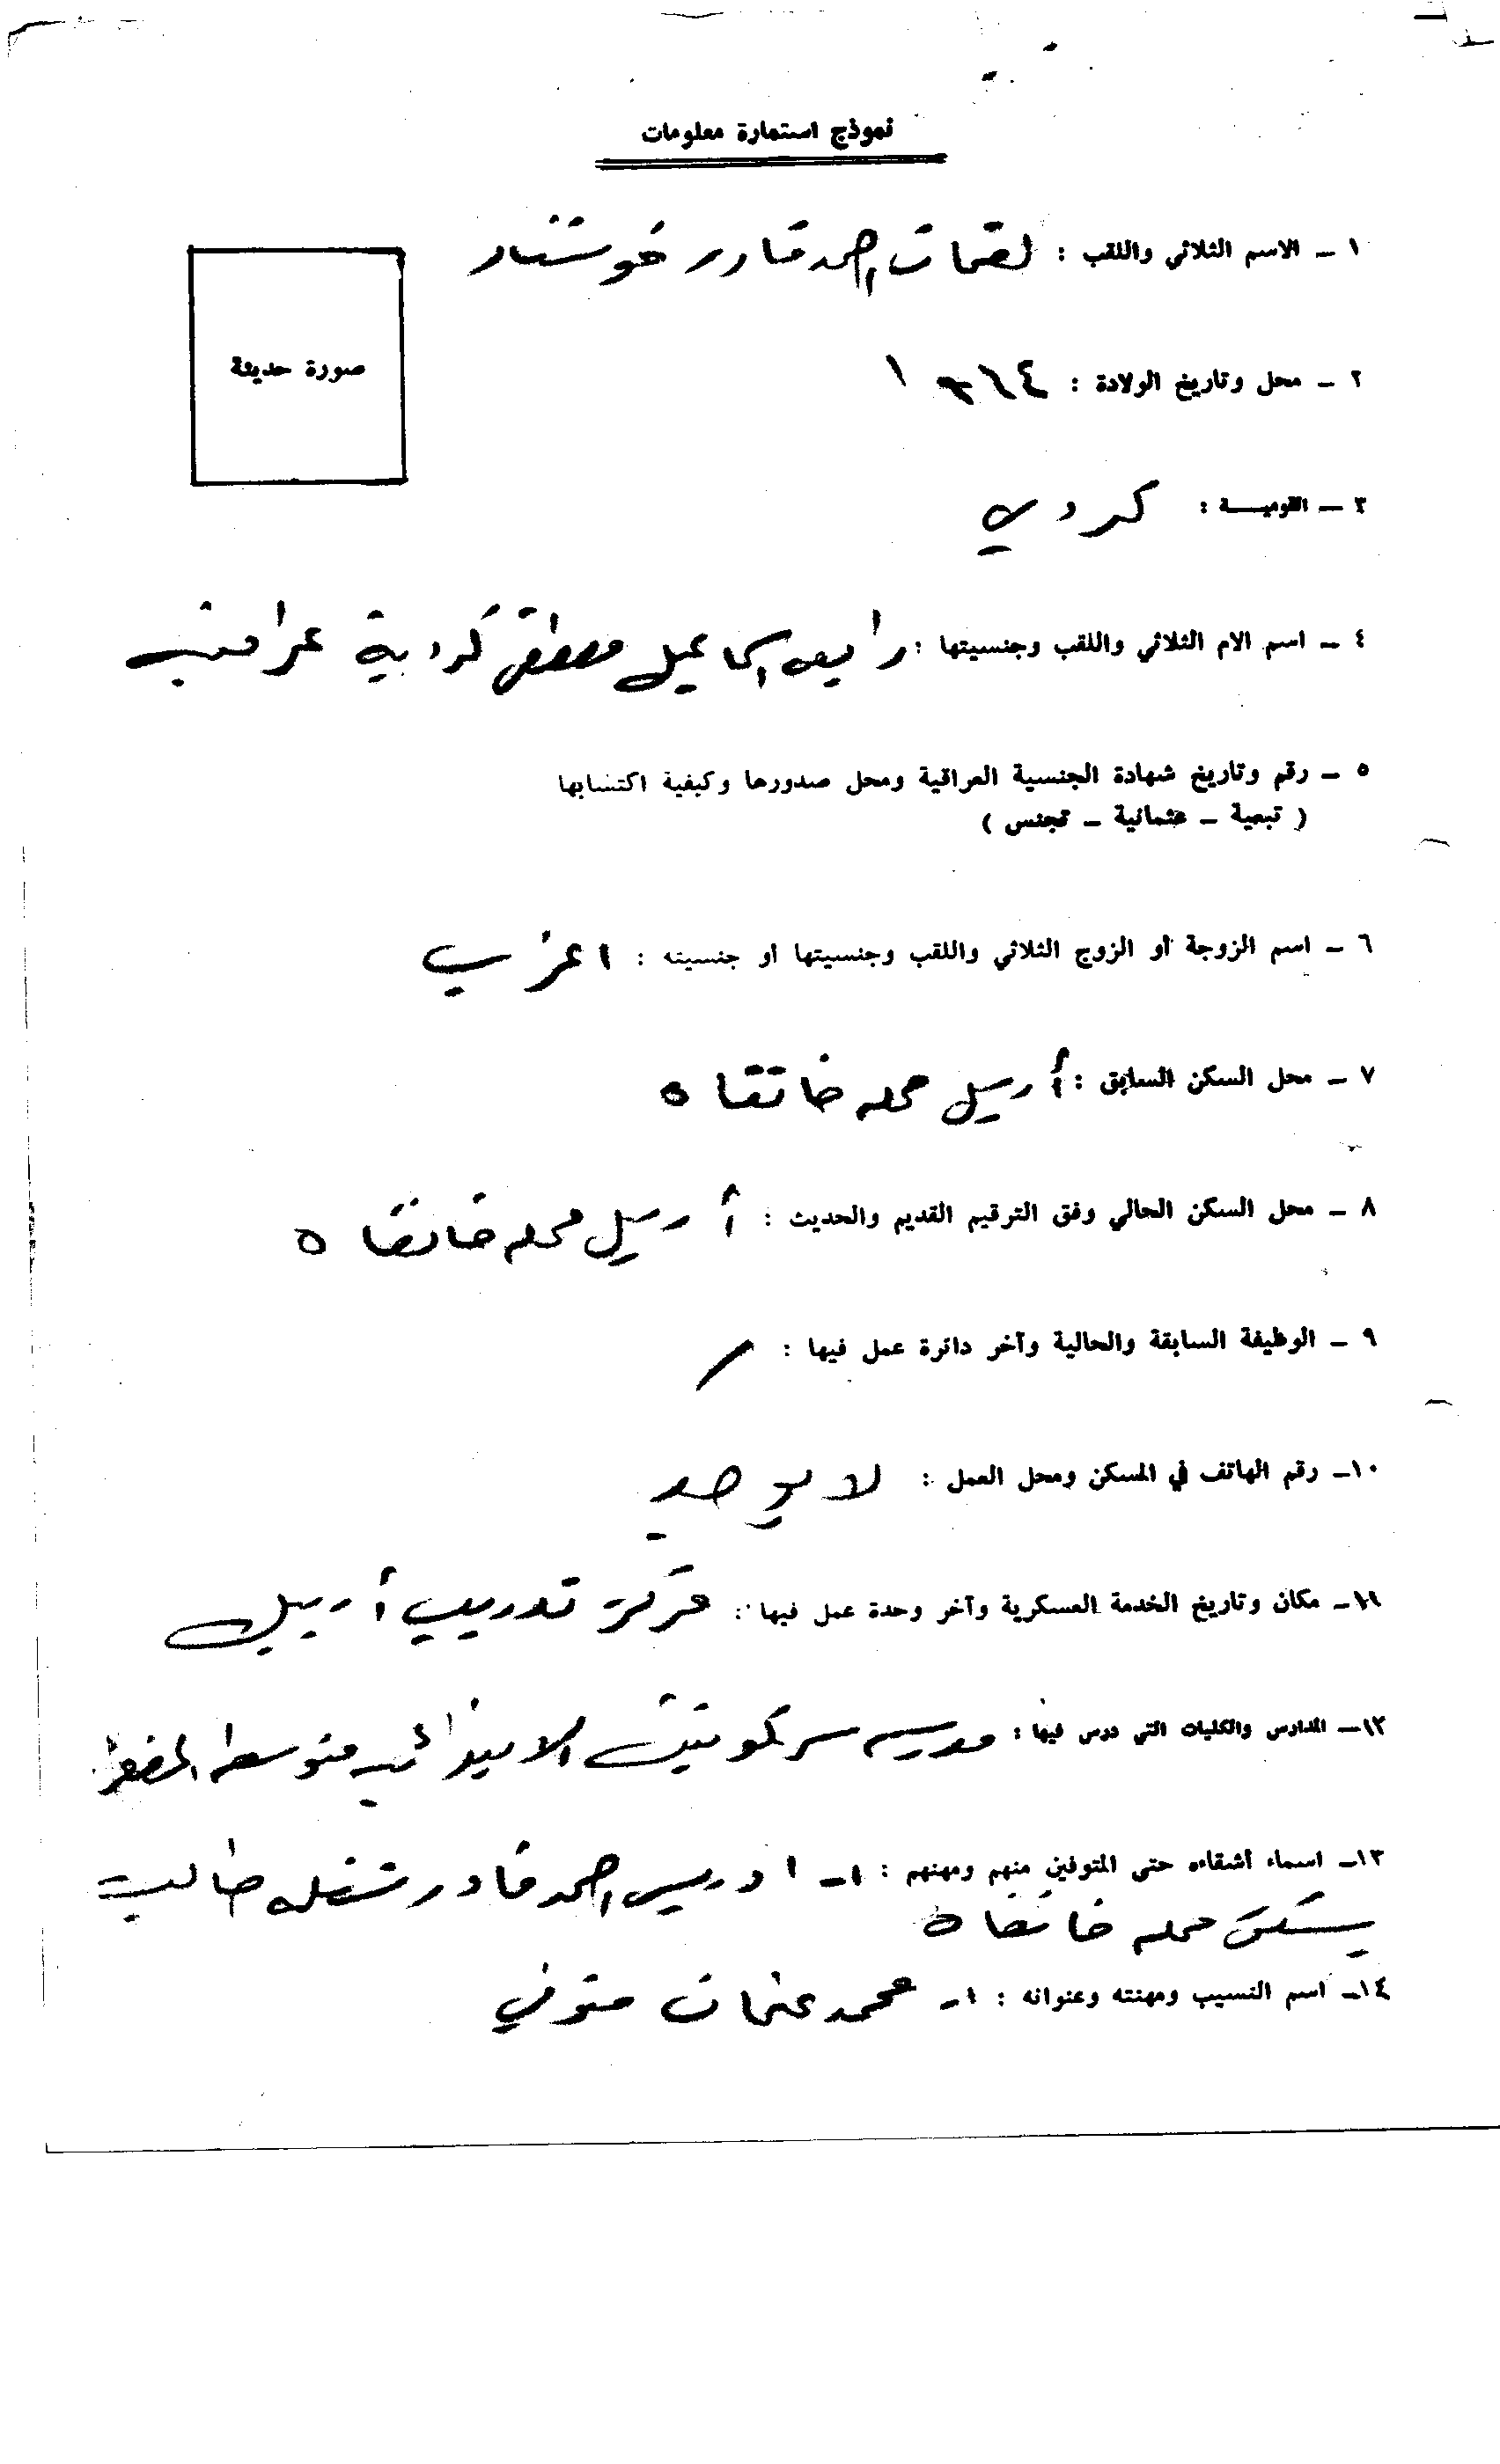 نموذج استمارة معلومات
١ - الاسم الثلاثي واللقب : لقمان احمد قادر خوشناو
صورة حديثة
٢ - محل وتاريخ الولادة :
٣ - القوميـــة : كردي
٤ - اسم الام الثلاثي واللقب وجنسيتها : اسماعيل مصطفى كردية عراقية
٥ - رقم وتاريخ شهادة الجنسية العراقية ومحل صدورها وكيفية اكتسابها
( تبعية - عثمانية - تجنس )
٦ - اسم الزوجة أو الزوج الثلاثي واللقب وجنسيتها او جنسيته : اعزب
٧ - محل السكن السابق : أربيل محله خانقاه
٨ - محل السكن الحالي وفق الترقيم القديم والحديث : أربيل محله خانقاه
٩ - الوظيفة السابقة والحالية وآخر دائرة عمل فيها : /
١٠- رقم الهاتف في المسكن ومحل العمل : لا يوجد
١١- مكان وتاريخ الخدمة العسكرية وآخر وحدة عمل فيها : مركز تدريب أربيل
١٢- المدارس والكليات التي درس فيها : مدرسه الابتدائيه متوسطه
١٣- اسماء أشقاءه حتى المتوفين منهم ومهنهم : ١- ادريس احمد قادر شغله طالب
يسكن محله خانقاه
١٤- اسم النسيب ومهنته وعنوانه : ١- محمد عثمان متوفي